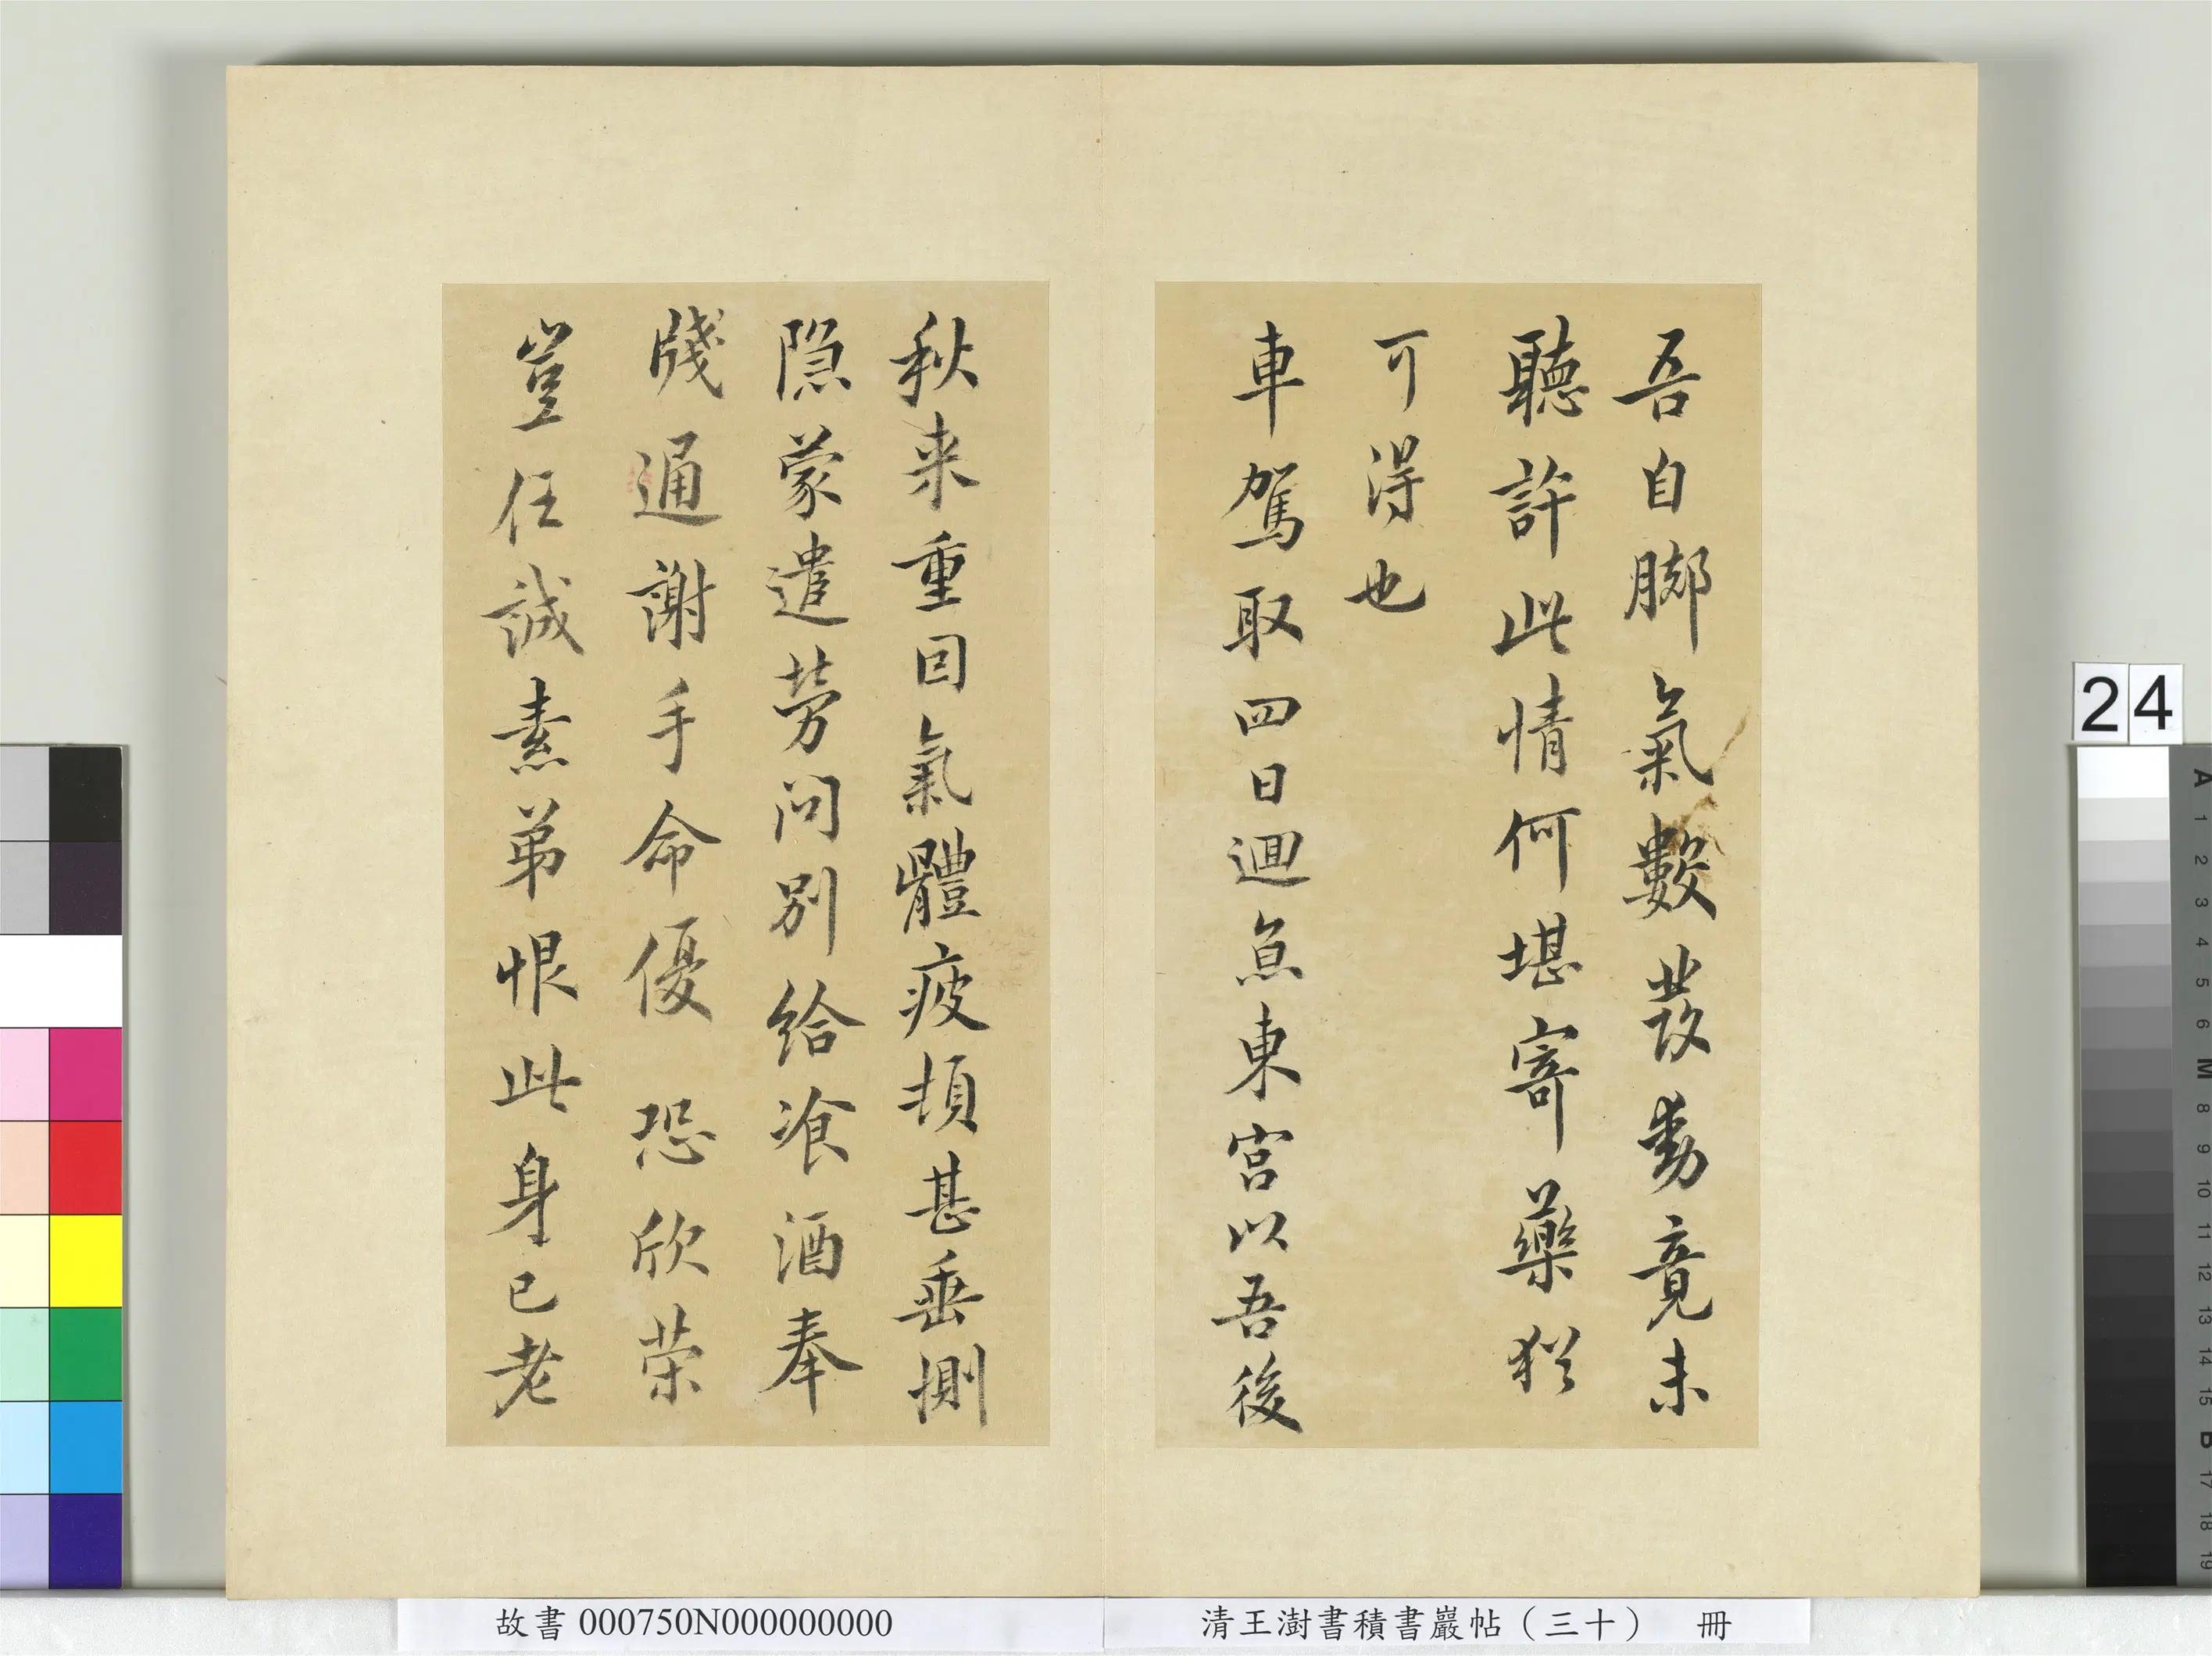 吾自脚氣數發動竟未
聽許此情何堪寄藥猶
可得也
車駕取四日迴魚東宮以吾後
秋来重回氣體疲頓甚垂惻
隐蒙遣劳问别给飡酒奉
牋通謝手命優 恐欣荣
豈任誠素弟恨此身已老
24
故書000750N000000000
清王澍書積書巖帖（三十） 冊
A
1
2
3
4
5
6
M
8
9
10
11
12
13
14
15
B
17
18
19